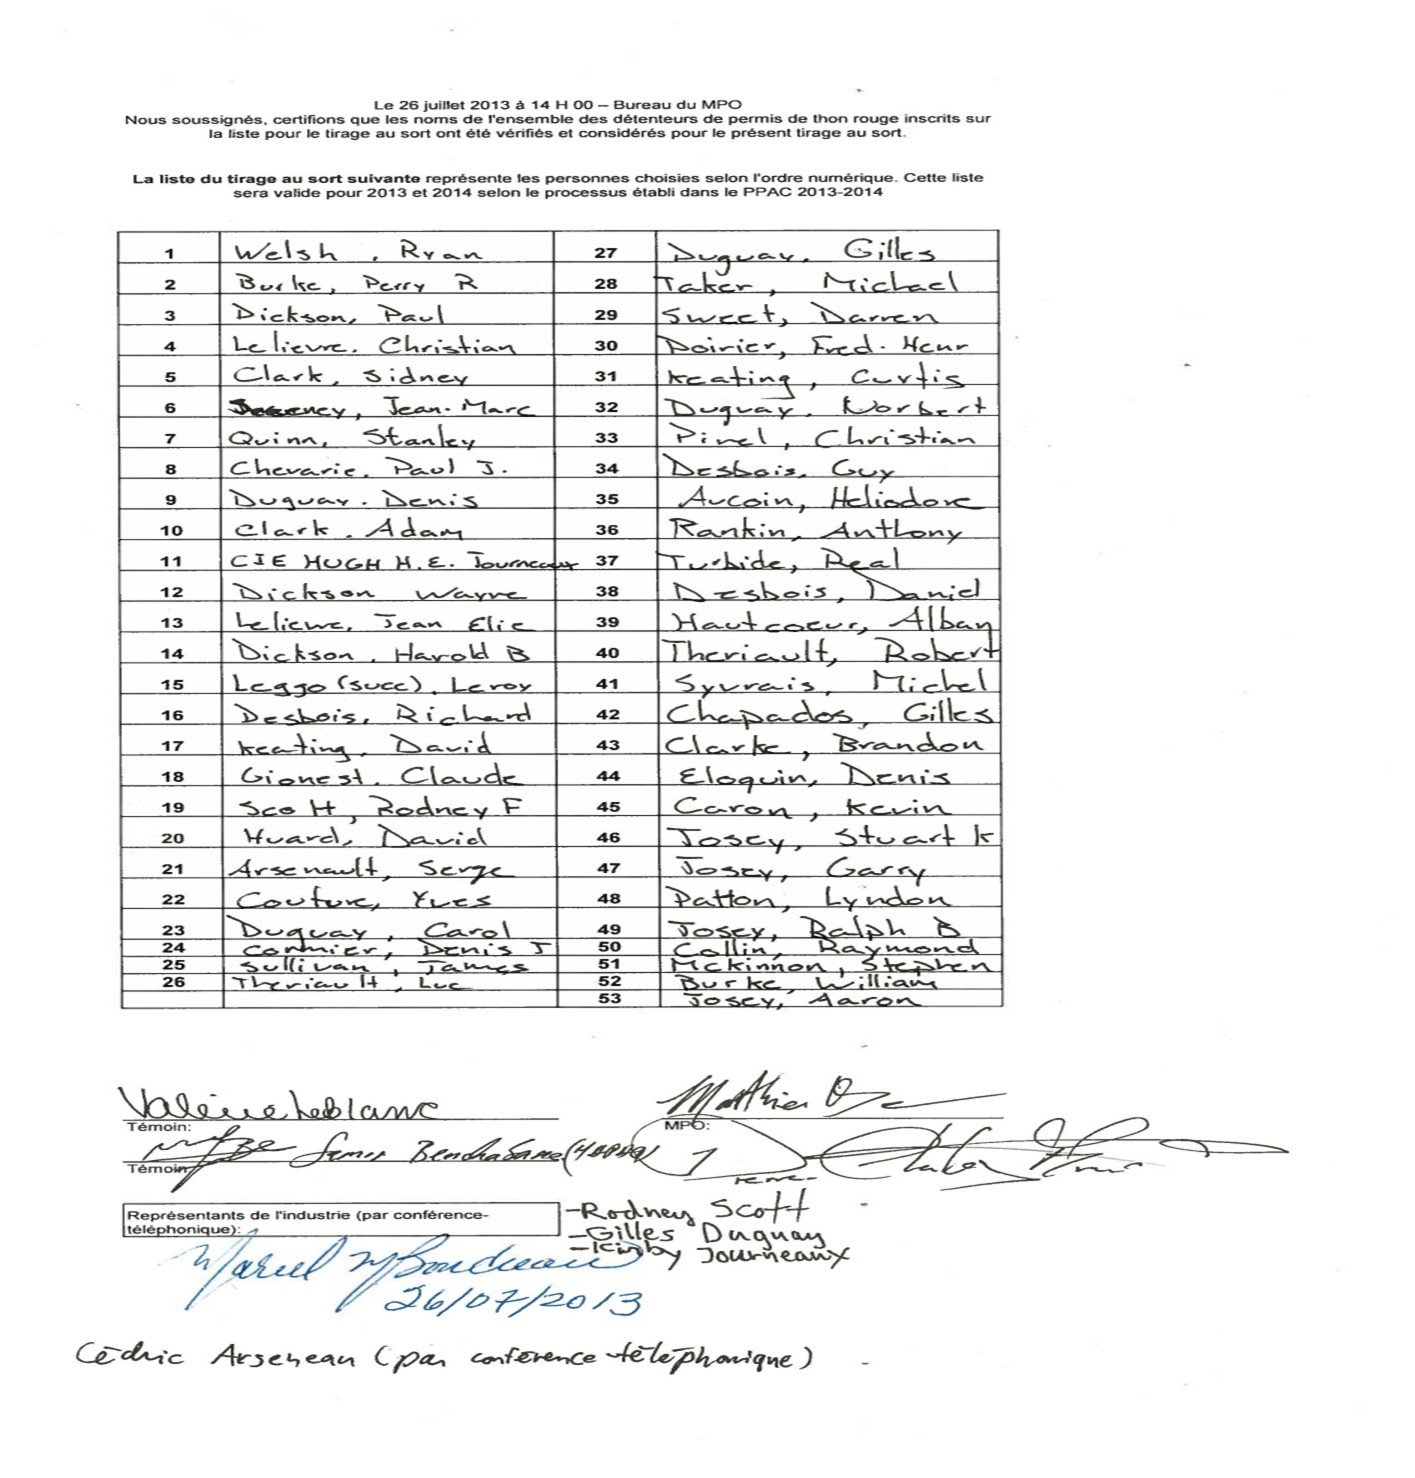 Le 26 juillet 2013 à 14 H 00 – Bureau du MPO
Nous soussignés, certifions que les noms de l'ensemble des détenteurs de permis de thon rouge inscrits sur
la liste pour le tirage au sort ont été vérifiés et considérés pour le présent tirage au sort.
La liste du tirage au sort suivante représente les personnes choisies selon l'ordre numérique. Cette liste
sera valide pour 2013 et 2014 selon le processus établi dans le PPAC 2013-2014
1 Welsh, Ryan 27 Duguay, Gilles
2 Burke, Perry R 28 Taker, Michael
3 Dickson, Paul 29 Sweet, Darren
4 Lelievre, Christian 30 Poirier, Fred. Henr
5 Clark, Sidney 31 Keating, Curtis
6 Jean-Marc 32 Duguay, Norbert
7 Quinn, Stanley 33 Pinel, Christian
8 Chevarie, Paul J. 34 Desbois, Guy
9 Duguay, Denis 35 Aucoin, Heliodore
10 Clark, Adam 36 Rankin, Anthony
11 CIE HUGH H.E. Journeaux 37 Turbide, Real
12 Dickson Wayne 38 Desbois, Daniel
13 Lelievre, Jean Elie 39 Hautcoeur, Alban
14 Dickson, Harold B 40 Theriault, Robert
15 Leggo (succ), Leroy 41 Syvrais, Michel
16 Desbois, Richard 42 Chapados, Gilles
17 Keating, David 43 Clarke, Brandon
18 Gionest, Claude 44 Eloquin, Denis
19 Scott, Rodney F 45 Caron, Kevin
20 Huard, David 46 Josey, Stuart K
21 Arsenault, Serge 47 Josey, Garry
22 Couture, Yves 48 Patton, Lyndon
23 Duguay, Carol 49 Josey, Ralph B
24 Cormier, Denis J 50 Collin, Raymond
25 Sullivan, James 51 Mckinnon, Stephen
26 Theriault, Luc 52 Burke, William
53 Josey, Aaron
Valérie Leblanc Matthieu
Témoin: MPO:
Témoin
Représentants de l'industrie (par conférence-
téléphonique):
-Rodney Scott
-Gilles Duguay
-Kirby Journeaux
Marcel
26/07/2013
Cédric Arseneau (par conférence téléphonique)